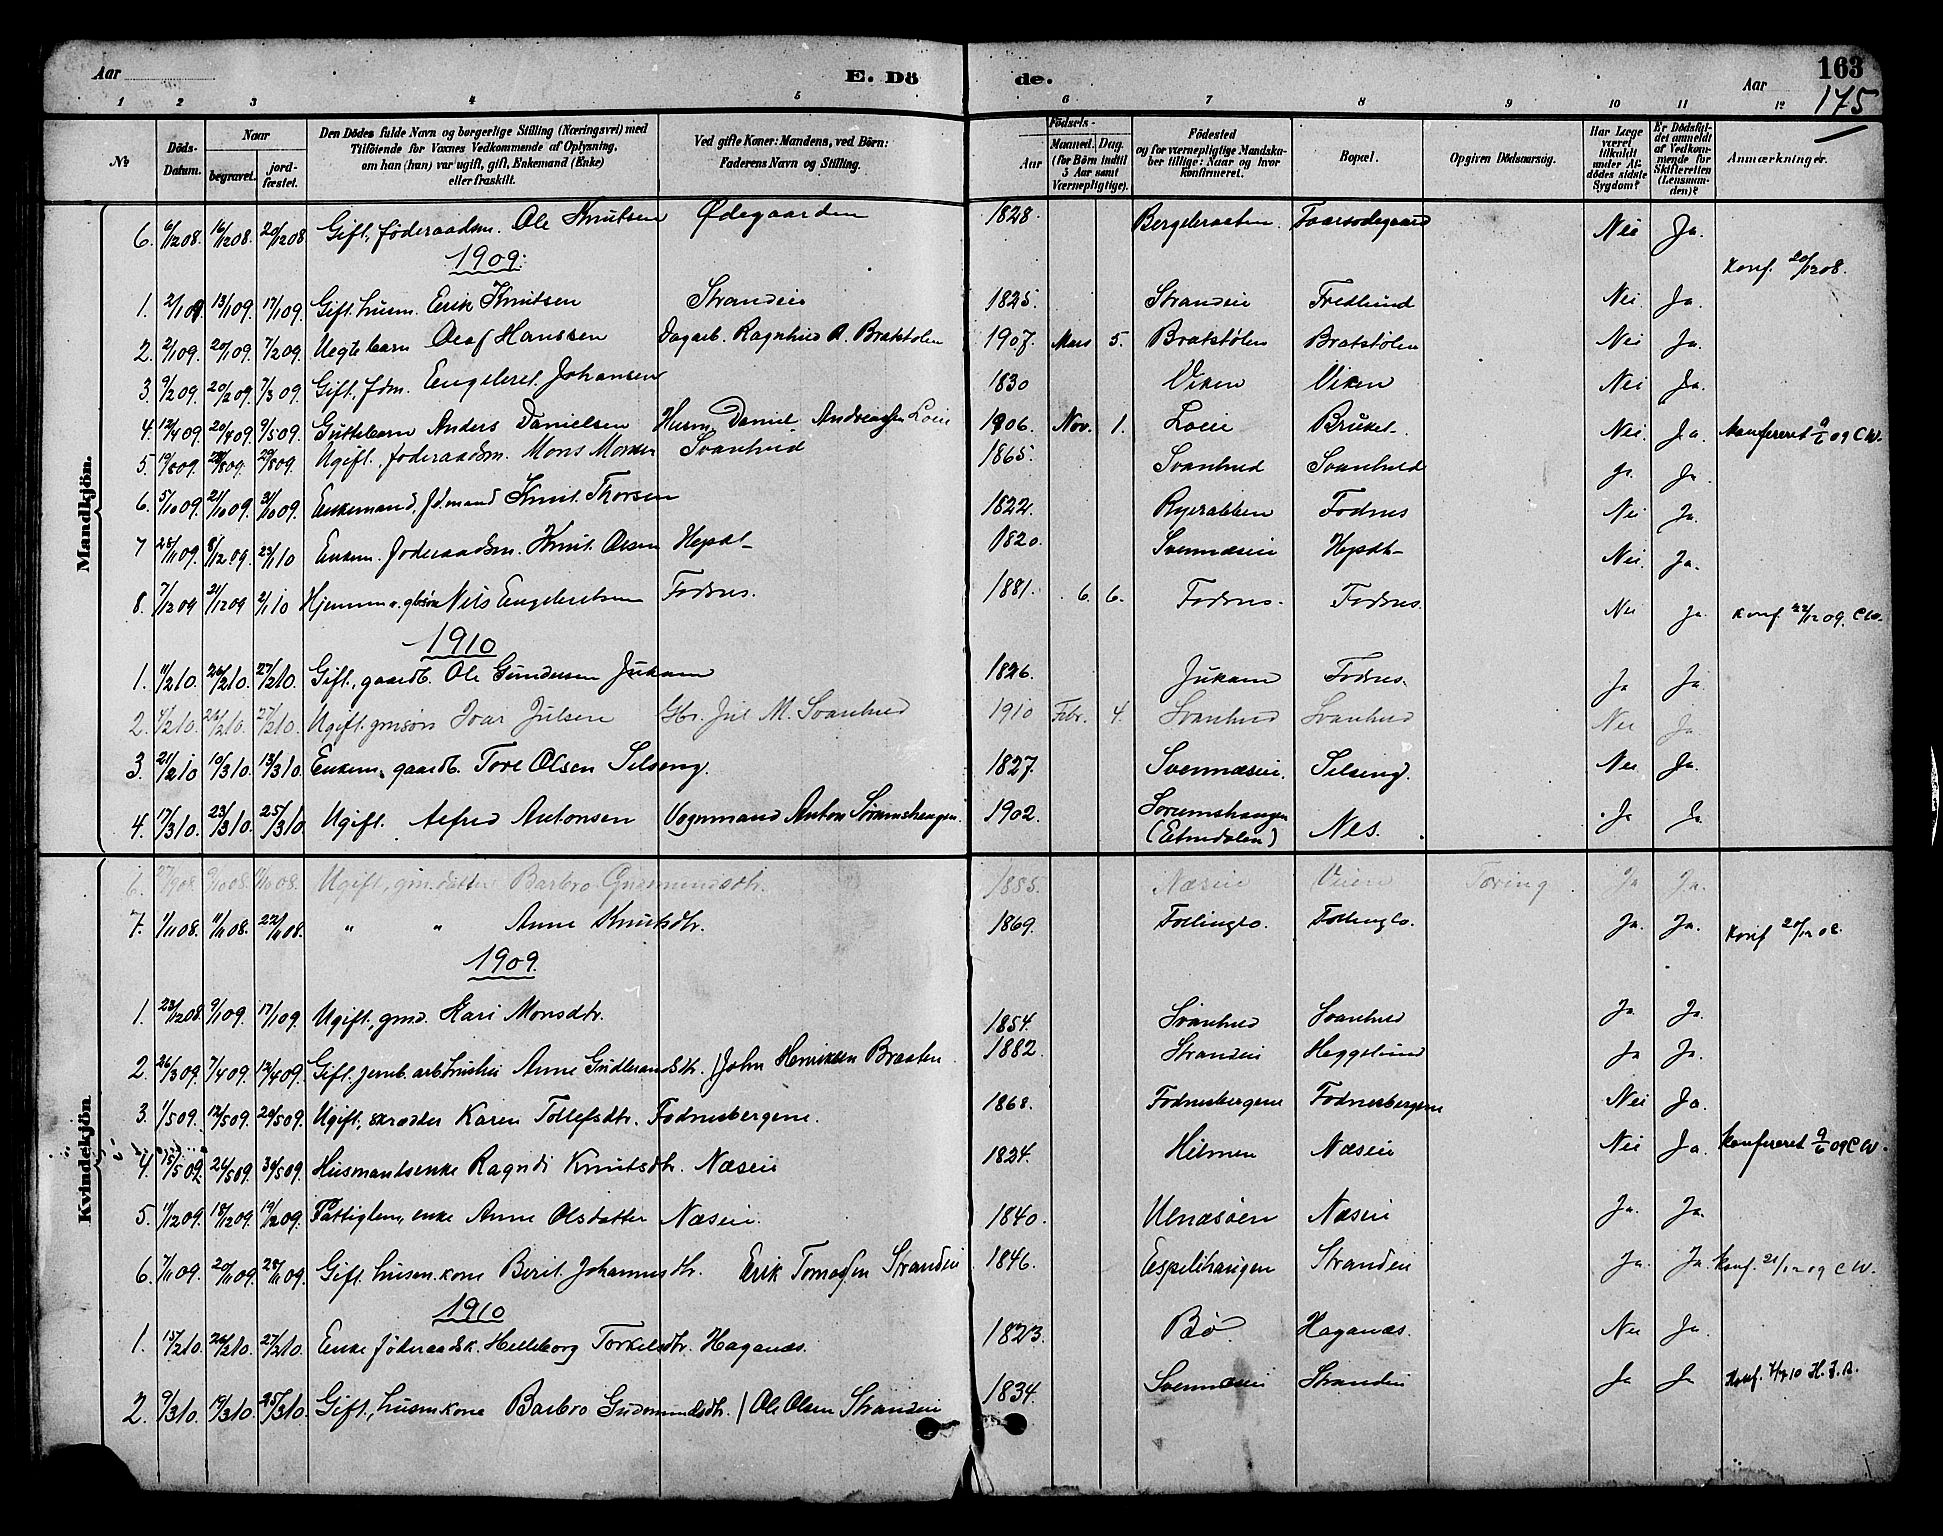 Aar
E. Dö de.
Aar
163
175
1 2 3 4 5 6 7 8 9 10 11 12
№
Döds-Datum.
Naar
begravet.
jord-fæstet.
Den Dödes fulde Navn og borgerlige Stilling (Næringsvei) med
Tilföiende for Voxnes Vedkommende af Oplysning,
om han (hun) var ugift, gift, Enkemand (Enke)
eller fraskilt.
Ved gifte Koner: Mandens, ved Börn:
Faderens Navn og Stilling.
Födsels-
Aar
Maaned. Dag.
(for Börn indtil
5 Aar samt
Værnepligtige).
Födested
og for værnepligtige Mandska-
ber tillige: Naar og hvor
konfirmeret.
Bopæl.
Opgiven Dödsaarsag.
Har Læge
været
tilkaldt
under Af-
dödes sidste
Sygdom?
Er Dödsfal-
det anmeldt
af Vedkom-
mende for
Skifteretten
(Lensman-
den)?
Anmærkninger.
Mandkjön.
6. 6/12 08. 16/12 08. 20/12 08 Gift, föderaadsm. Ole Knutsen Ødegaarden 1828. Bergeleraaten. Nei Ja.
Konf. 20/12 08.
1909.
1. 2/1 09. 13/1 09. 17/1 09. Gift. husm. Erik Knutsen Strandeie 1825. Strandeie Fredlund Nei Ja.
2. 2/1 09. 20/1 09. 7/2 09. Uegte barn Olaf Hanssen Dagarb. Ragnhild O. Bratstølen 1907. Mars 5. Bratstølen Bratstølen Nei Ja.
3. 9/2 09. 20/2 09. 7/3 09. Gift, fdm. Engebret Johansen 1830 Viken Viken Nei Ja.
4. 12/4 09. 20/4 09. 9/5 09. Guttebarn Anders Danielsen Husm. Daniel Andreassen Loeie 1906. Nov. 1. Loeie Bruket. Nei. Ja. Konfereret 9/6 09 CW.
5. 19/8 09. 28/8 09. 29/8 09. Ugift, föderaadsm. Mons Monsen Svanhild 1865. Svanhild Svanhild Ja. Ja.
6. 5/10 09. 21/10 09. 31/10 09. Enkemand, fdmand Knut Thorsen 1822. Ryerabben Fodnes Nei Ja.
7 28/11 09. 8/12 09. 23/1 10 Enkem. föderaadsm. Knut Olsen 1820. Svennæseie Nei. Ja.
8. 7/12 09 21/12 09 2/1 10 Nils Engebretsen Fodnes. 1881. 6. 6. Fodnes. Fodnes. Nei Ja. Konf. 22/12 09. CW.
1910
1. 11/2 10. 26/2 10. 27/2 10. Gift, gaardb. Ole Gundersen Jukam 1826. Jukam Fodnes. Ja Ja
2. 4/2 10. 26/2 10. 27/2 10. Ugift gmsøn Ivar Julsen Gbr. Jul M. Svanhild 1910 Febr. 4. Svanhild Svanhild Nei Ja
3. 21/2 10 10/3 10. 13/3 10. Enkem. gaardb. Tore Olsen Selseng. 1827. Svennæseie. Selseng. Nei Ja.
4. 17/3 10. 23/3 10. 25/3 10. Ugift. Alfred Antonsen Vognmand Anton Sørumshaugen. 1902. Sørumshaugen (Etnedalen) Nes. Ja Ja.
Kvindekjön.
6. 27/9 08. 9/10 08. 11/10 08. Ugift, gm. datter Barbro Gudmundsdtr. 1885. Næseie Veien Tæring Ja Ja.
7. 1/11 08. 11/11 08. 22/11 08. " " Anne Knutsdtr. 1869. Follinglo. Follinglo. Ja. Ja. Konf 20/12 08.
1909.
1. 23/12 08. 9/1 09. 17/1 09. Ugift, gmd. Kari Monsdtr. 1854. Svanhild Svanhild Ja Ja.
2. 26/3 09. 7/4 09. 12/4 09. Gift. jernb. arb. hustru Anne Gudbrandsdtr. / John Henriksen Braaten 1882. Strandeie Heggelund Ja Ja.
3. 1/5 09. 12/5 09. 20/5 09. Ugift, Karen Tollefsdtr. Fodnesbergene. 1868. Fodnesbergene Fodnesbergene Nei Ja.
4. 15/5 09. 26/5 09. 30/5 09. Husmandsenke Ragndi Knutsdtr. Næseie 1824. Hilmen Næseie Nei Ja. Konfereret 9/6 09 CW.
5. 11/12 09. 18/12 09. 19/12 09. Fattiglem, enke Anne Olsdatter Næseie. 1840. Ulnæsøen Næseie Ja. Ja.
6. 7/11 09. 20/11 09. 28/11 09. Gift. husm.kone Berit Johannesdtr. Erik Tomassen Strandeie 1846. Espelihaugen Strandeie Ja. Ja. Konf. 21/12 09 CW.
1910
1. 15/2 10. 26/2 10. 27/2 10. Enke föderaadsk. Helleborg Torkelsdtr. Haganæs. 1823. Bø. Haganæs. Nei Ja.
2. 9/3 10. 19/3 10. 25/3 10. Gift, husmkone Barbro Gudmundsdtr. / Ole Olsen Strandeie 1834. Svennæseie Strandeie Ja Ja